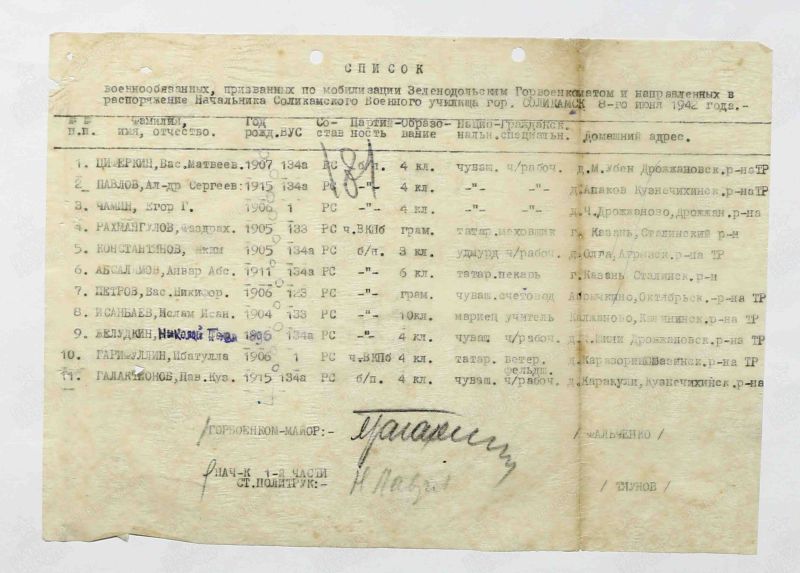 СПИСОК
военнообязанных, призванных по мобилизации Зеленодольским Горвоенкоматом и направленных в
распоряжение Начальника Соликамского Военного училища гор. СОЛИКАМСК 8-го июня 1942 года.-
№ № Фамилия, Год Со- Партий- Образо- Нацио- Гражданск.
п.п. имя, отчество. рожд. ВУС став ность вание нальн. специальн. Домашний адрес.
181
1. Вас. Матвеев. 1907 134а РС б/п. 4 кл. чуваш. ч/рабоч. д.М.Убен Дрожжановск.р-на ТР
2. ПАВЛОВ, Ал-др Сергеев. 1915 134а РС -"- 4 кл. -"- -"- д. Кузнечихинск.р-на ТР
3. ЧАМИН, Егор Г. 1906 1 РС -"- 4 кл. -"- -"- д.Ч.Дрожжаново, Дрожжан.р-на
4. РАХМАНГУЛОВ, 1905 133 РС ч.ВКПб грам. татар. г. Казань, Сталинский р-н
5. КОНСТАНТИНОВ, Яким 1905 134а РС б/п. 3 кл. удмурд ч/рабоч. р-на ТР
6. АБСАЛЯМОВ, Анвар Абс. 1911 134а РС -"- 6 кл. татар. пекарь г.Казань Сталинск.р-н
7. ПЕТРОВ, Вас. Никифор. 1906 123 РС -"- грам. чуваш. счетовод Октябрьск.-р-на ТР
8. ИСАНБАЕВ, Ислам Исан. 1904 133 РС -"- 10кл. мариец учитель Калининск.р-на ТР
9. ЖЕЛУДКИН, Николай 1896 134а РС -"- 4 кл. чуваш ч/рабоч. Дрожжановск.р-на ТР
10. ГАРИФУЛЛИН, Ибатулла 1906 1 РС ч.ВКПб 4 кл. татар. ветер. р-на ТР
фельдш.
11. ГАЛАКТИОНОВ, Пав.Куз. 1915 134а РС б/п. 4 кл. чуваш. ч/рабоч. д.Каракули, Кузнечихинск.р-на
/ГОРВОЕНКОМ-МАЙОР:- / ФАЛЬЧЕНКО /
НАЧ-К 1-й ЧАСТИ
СТ.ПОЛИТРУК:- / ТЯУНОВ /